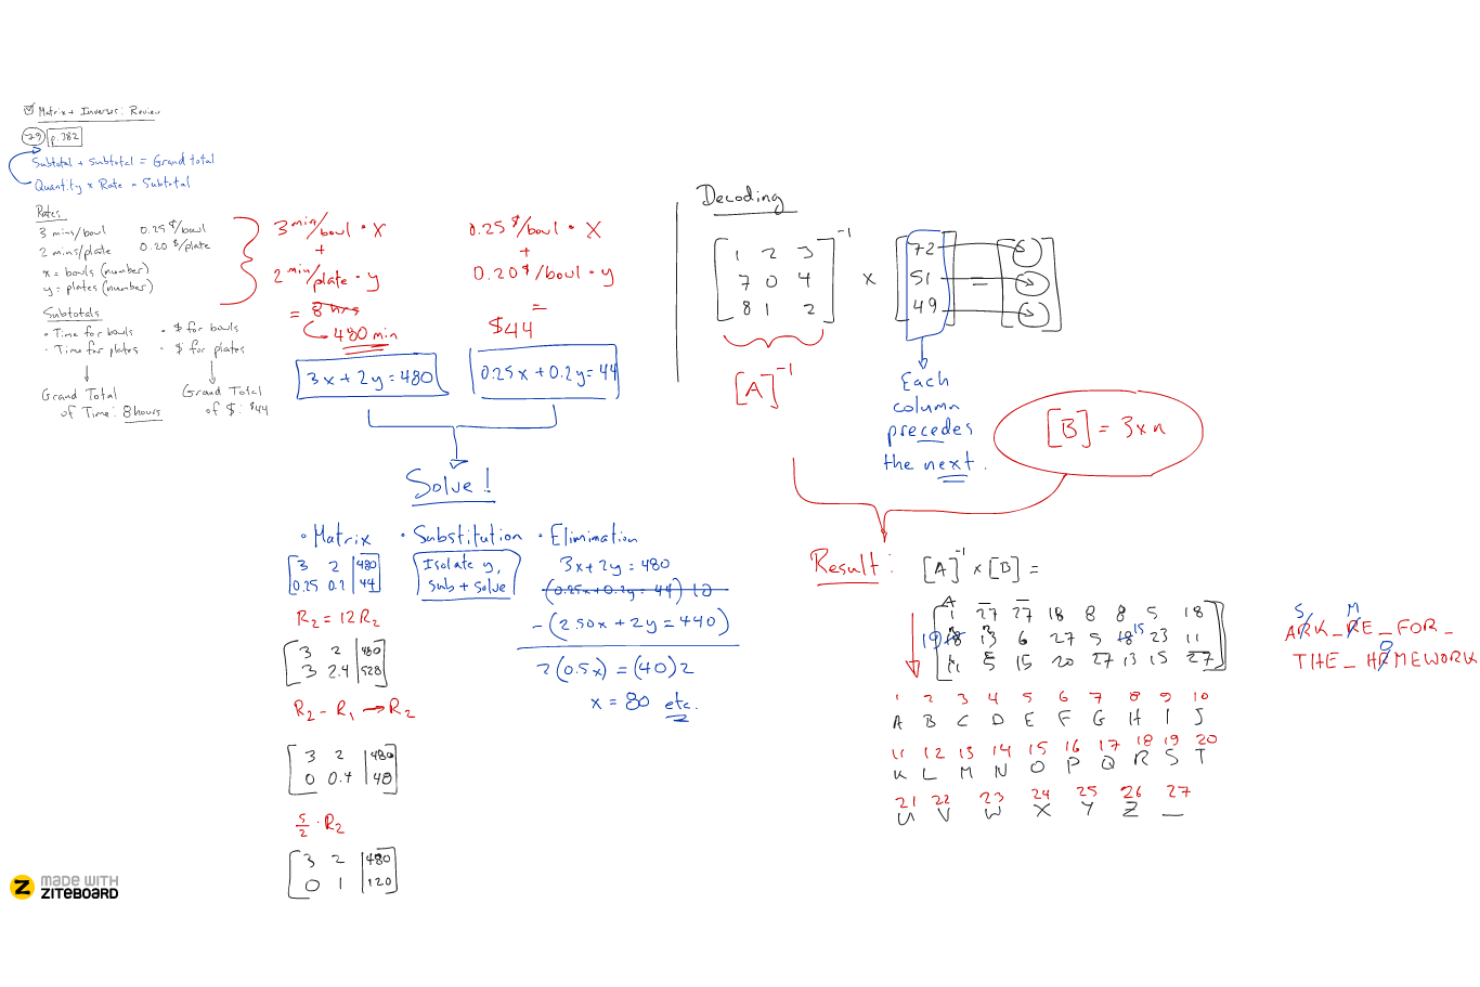 Matrix + Inverses: Review
79 p. 382
Subtotal + Subtotal = Grand total
Quantity x Rate = Subtotal
Rates
3 mins/bowl 0.25 $/bowl
2 mins/plate 0.20 $/plate
x = bowls (number)
y = plates (number)
Subtotals
• Time for bowls • $ for bowls
• Time for plates • $ for plates
Grand Total Grand Total
of Time: 8 hours of $: $44
3 min/bowl • x
+
2 min/plate • y
= 8 hrs
480 min
3x + 2y = 480
0.25 $/bowl • x
+
0.20 $/bowl • y
=
$44
0.25x + 0.2y = 44
Solve!
• Matrix • Substitution • Elimination
3 2 480
0.25 0.2 44
R2 = 12R2
3 2 480
3 2.4 528
R2 - R1 → R2
3 2 480
0 0.4 48
5/2 • R2
3 2 480
0 1 120
Isolate y,
sub + solve
3x + 2y = 480
(0.25x + 0.2y = 44) 10
-(2.50x + 2y = 440)
2(0.5x) = (40)2
x = 80 etc.
Decoding
1 2 3 -1 72
7 0 4 x 51 =
8 1 2 49
[A]-1
Each
column
precedes
the next.
[B] = 3xn
Result: [A]-1 x [B] =
A
1 27 27 18 8 8 5 18
19 18 13 6 27 5 18 15 23 11
11 5 15 20 27 13 15 27
S M
ARK_RE_FOR_
O
THE_HRMEWORK
1 2 3 4 5 6 7 8 9 10
A B C D E F G H I J
11 12 13 14 15 16 17 18 19 20
K L M N O P Q R S T
21 22 23 24 25 26 27
U V W X Y Z _
MADE WITH
ZITEBOARD